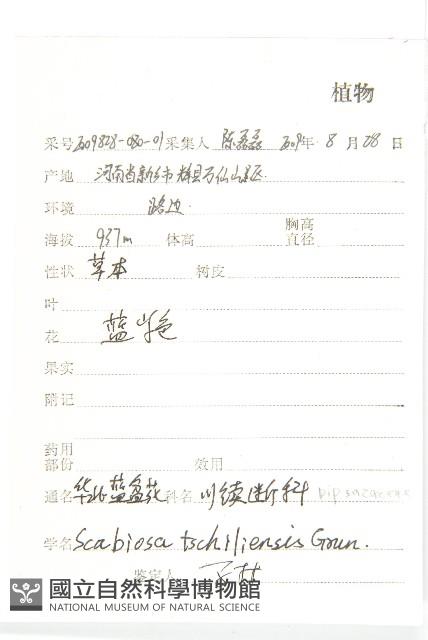 植物
采号 2009828-080-01 采集人 陈磊磊 2009年 8 月 28 日
产地 河南省新乡市辉县万仙山景区
环境 路边
海拔 937m 体高 胸高直径
性状 草本 树皮
叶
花 蓝紫色
果实
附记
药用部份 效用
通名 华北蓝盆花 科名 川续断科 Dipsacaceae
学名 Scabiosa tschiliensis Grun.
鉴定人
國立自然科學博物館
NATIONAL MUSEUM OF NATURAL SCIENCE